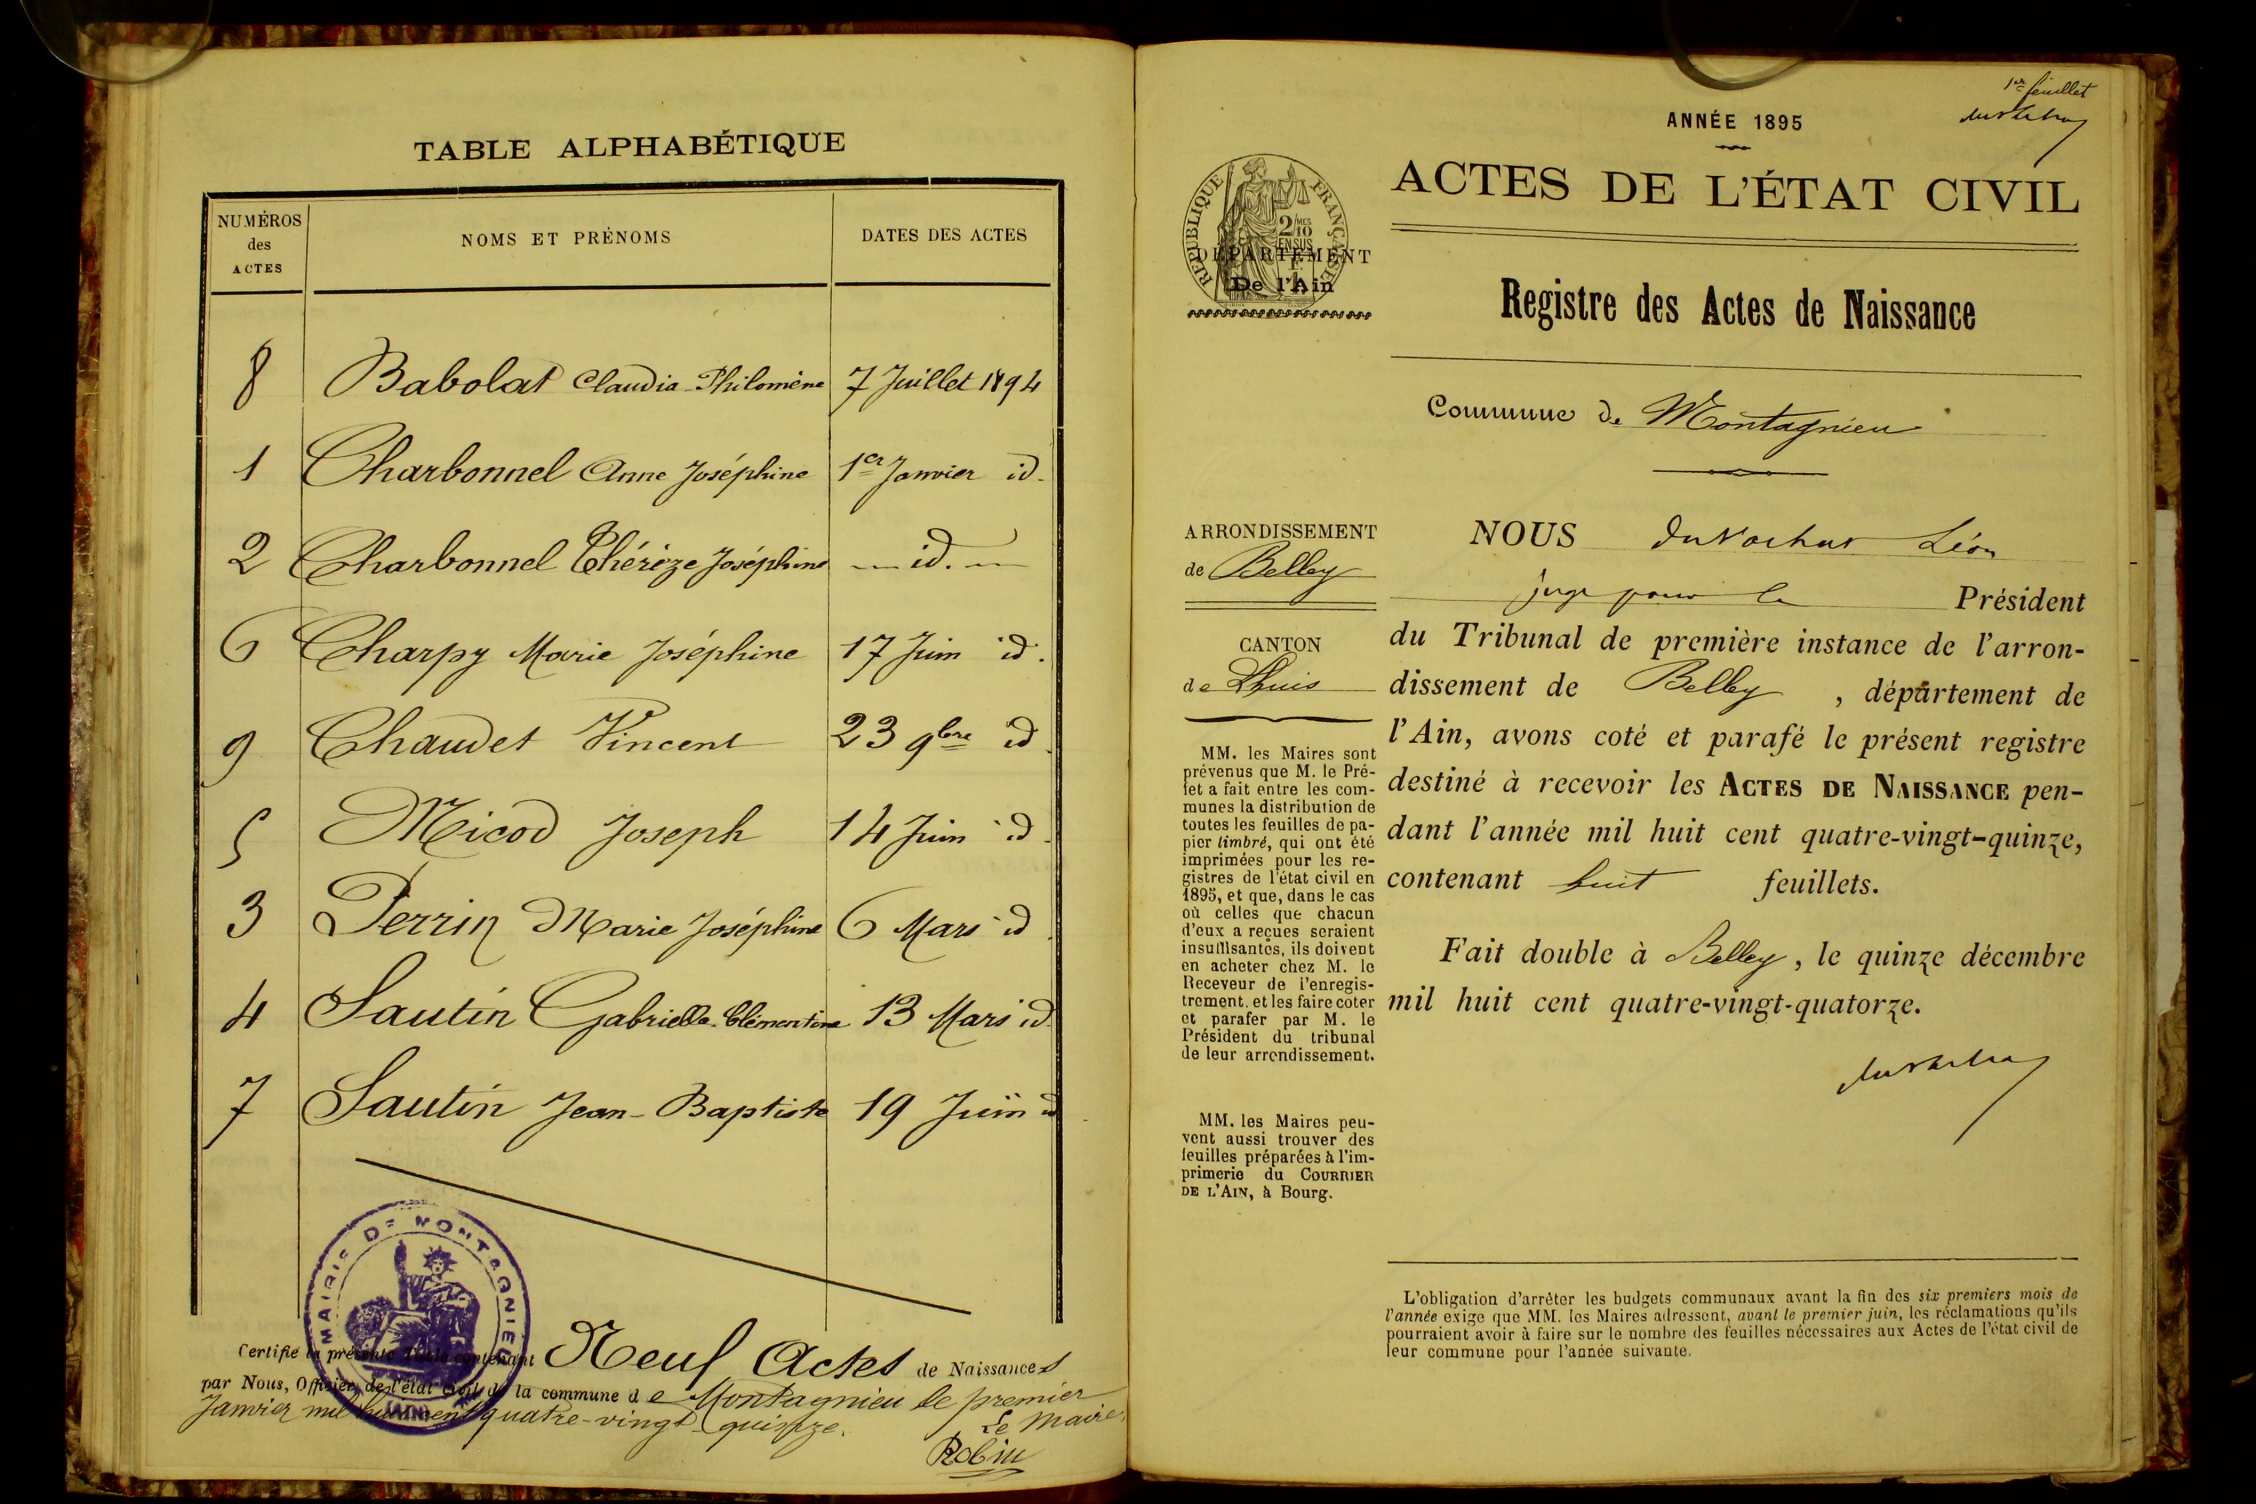 TABLE ALPHABÉTIQUE
NUMÉROS des ACTES NOMS ET PRÉNOMS DATES DES ACTES
8 Babolat Claudia-Philomène 7 Juillet 1894
1 Charbonnel Anne Joséphine 1er Janvier id.
2 Charbonnel Thérèze Joséphine — id. —
6 Charpy Marie Joséphine 17 Juin id.
9 Chaudet Vincent 23 9bre id.
5 Micod Joseph 14 Juin id.
3 Perrin Marie Joséphine 6 Mars id.
4 Sautin Gabrielle-Clémentine 13 Mars id.
7 Sautin Jean-Baptiste 19 Juin id
MAIRIE DE MONTAGNIEU
(AIN)
Certifié la présente Table contenant Neuf Actes de Naissances
par Nous, Officier de l'état civil de la commune de Montagnieu le premier
Janvier mil huit cent quatre-vingt quinze.
Le Maire,
Robin
1er feuillet
ANNÉE 1895
ACTES DE L'ÉTAT CIVIL
RÉPUBLIQUE FRANÇAISE
2/10 MES
EN SUS
DÉPARTEMENT
De l'Ain
Registre des Actes de Naissance
Commune de Montagnieu
ARRONDISSEMENT
de Belley
CANTON
de Lhuis
MM. les Maires sont
prévenus que M. le Pré-
fet a fait entre les com-
munes la distribution de
toutes les feuilles de pa-
pier timbré, qui ont été
imprimées pour les re-
gistres de l'état civil en
1895, et que, dans le cas
où celles que chacun
d'eux a reçues seraient
insuffisantes, ils doivent
en acheter chez M. le
Receveur de l'enregis-
trement, et les faire coter
et parafer par M. le
Président du tribunal
de leur arrondissement.
MM. les Maires peu-
vent aussi trouver des
feuilles préparées à l'im-
primerie du COURRIER
DE L'AIN, à Bourg.
NOUS Léon
juge pour le Président
du Tribunal de première instance de l'arron-
dissement de Belley, département de
l'Ain, avons coté et parafé le présent registre
destiné à recevoir les ACTES DE NAISSANCE pen-
dant l'année mil huit cent quatre-vingt-quinze,
contenant huit feuillets.
Fait double à Belley, le quinze décembre
mil huit cent quatre-vingt-quatorze.
L'obligation d'arrêter les budgets communaux avant la fin des six premiers mois de
l'année exige que MM. les Maires adressent, avant le premier juin, les réclamations qu'ils
pourraient avoir à faire sur le nombre des feuilles nécessaires aux Actes de l'état civil de
leur commune pour l'année suivante.